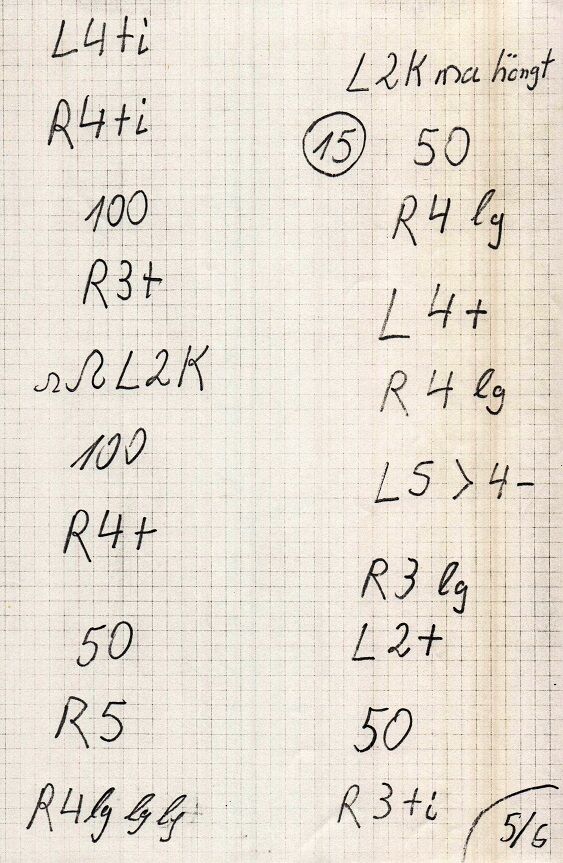 L4+i
R4+i
100
R3+
L2K
100
R4+
50
R5
R4lg lg lg
L2K ma hängt
15 50
R4 lg
L4+
R4 lg
L5 > 4-
R3 lg
L2+
50
R3+i
5/6